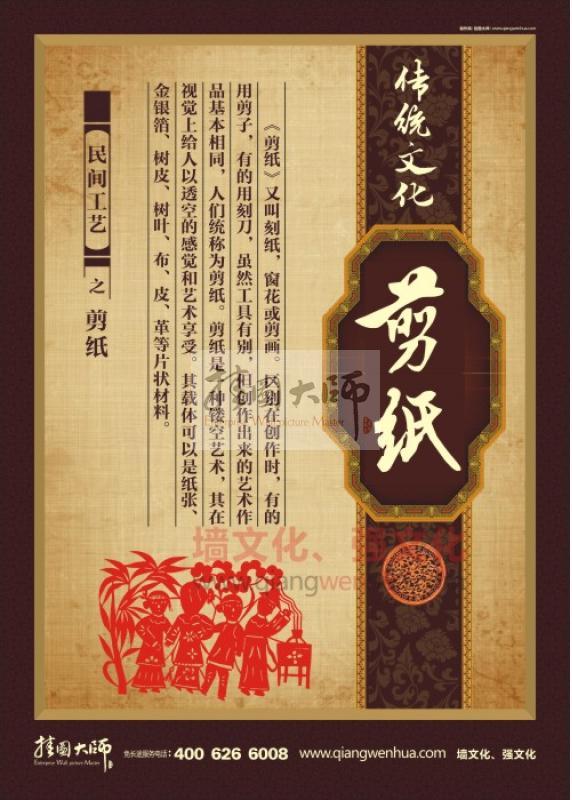 墙文化 挂图大师 | www.qiangwenhua.com
传统文化
剪纸
《剪纸》又叫刻纸，窗花或剪画。区别在创作时，有的
用剪子，有的用刻刀，虽然工具有别，但创作出来的艺术作
品基本相同，人们统称为剪纸。剪纸是一种镂空艺术，其在
视觉上给人以透空的感觉和艺术享受。其载体可以是纸张、
金银箔、树皮、树叶、布、皮、革等片状材料。
民间工艺之剪纸
挂图大师
Enterprise Wall picture Master
墙文化、强文化
www.qiangwenhua.com
挂图大师
Enterprise Wall picture Master
免长途服务电话：400 626 6008 www.qiangwenhua.com 墙文化、强文化